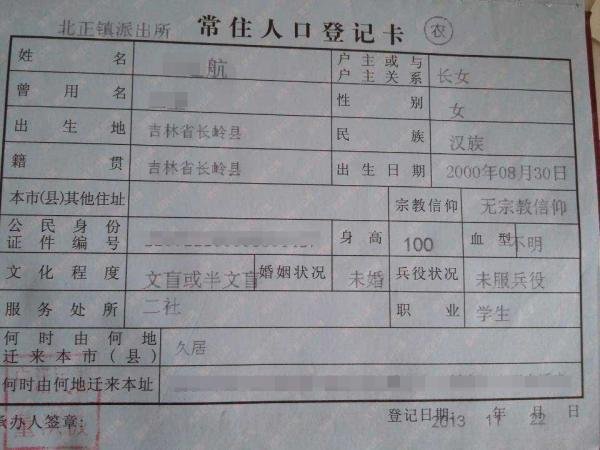 北正镇派出所 常住人口登记卡 农
姓名 航 户主或与户主关系 长女
曾用名 性别 女
出生地 吉林省长岭县 民族 汉族
籍贯 吉林省长岭县 出生日期 2000年08月30日
本市(县)其他住址 宗教信仰 无宗教信仰
公民身份证件编号 身高 100 血型 不明
文化程度 文盲或半文盲 婚姻状况 未婚 兵役状况 未服兵役
服务处所 二社 职业 学生
何时由何地迁来本市(县) 久居
何时由何地迁来本址
承办人签章: 登记日期: 2013 年 11 月 22 日